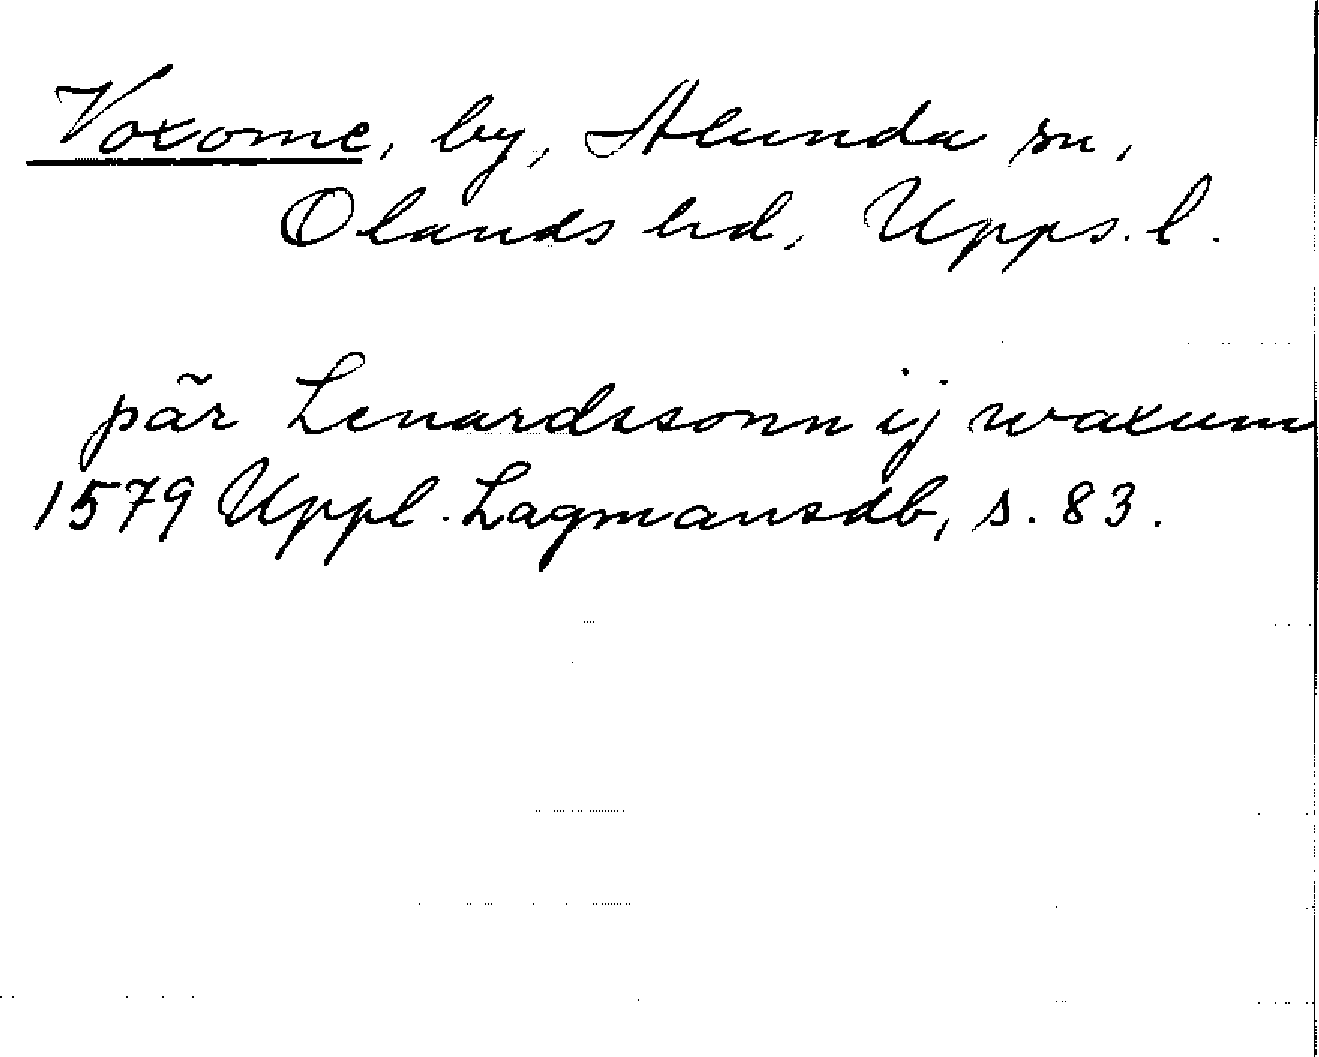 Voxome, by, Alunda sn,
Olands hd, Upps. l.
pãr Lenardssonn ij waxum
1579 Uppl. Lagmansdb, s. 83.